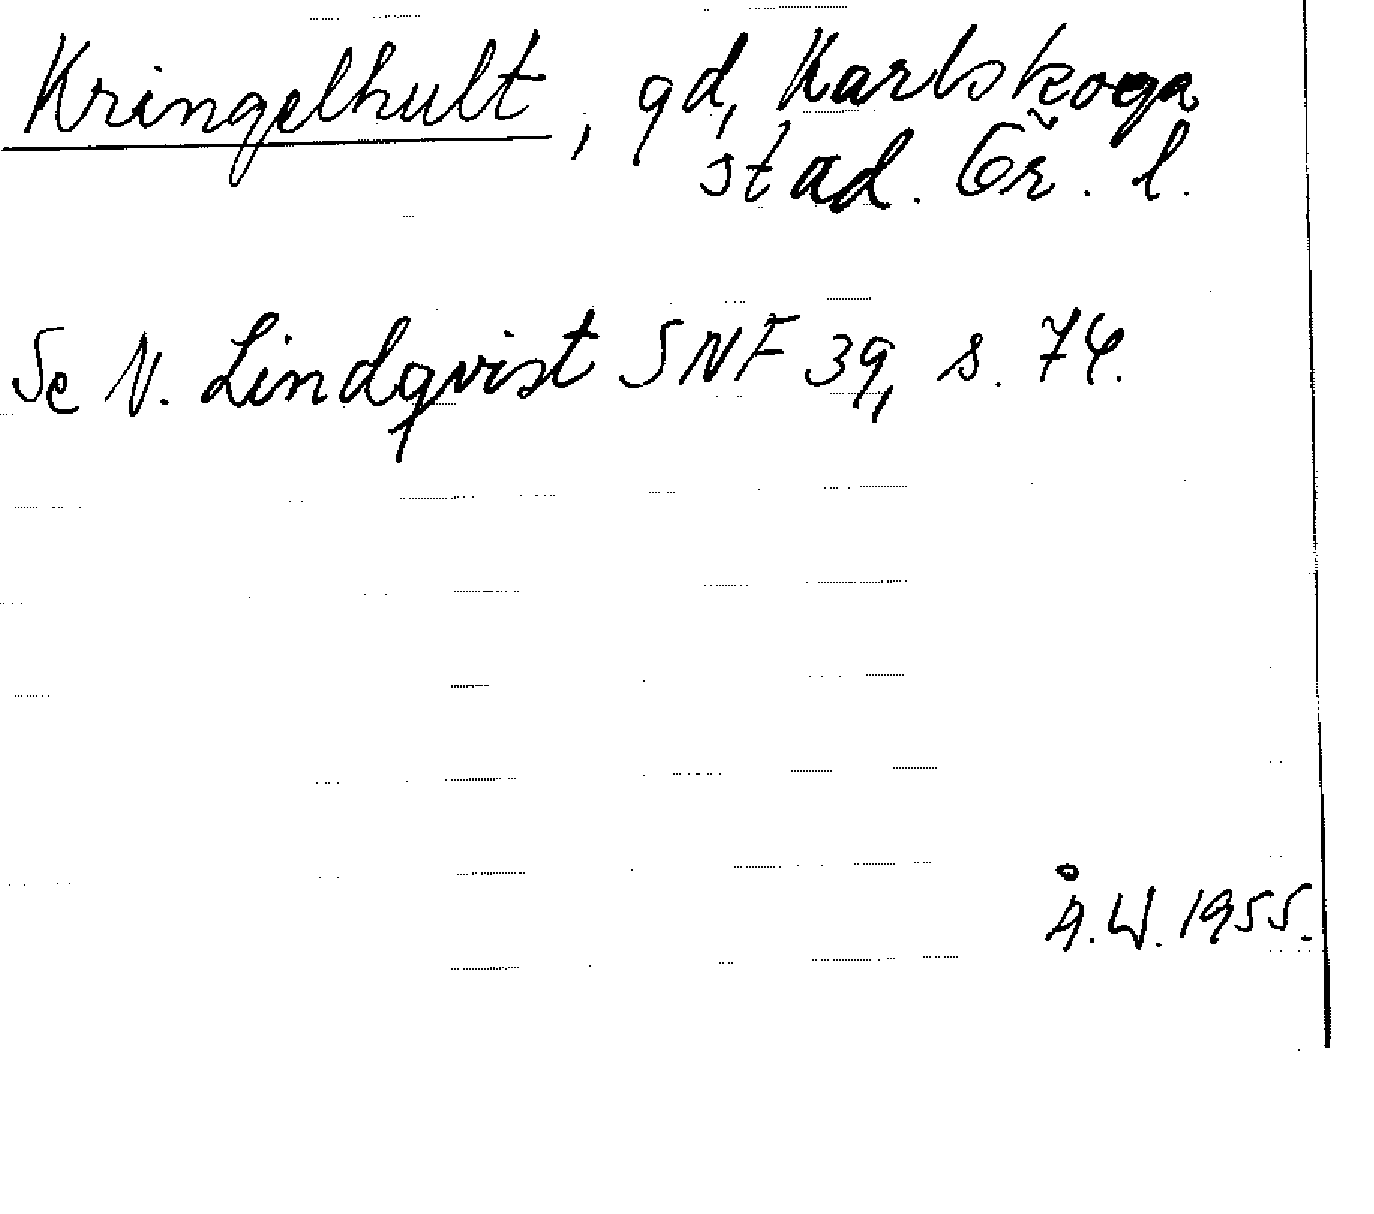 Kringelhult, gd, Karlskoga
stad. Ör. l.
Se N. Lindqvist SNF 39, s. 74.
Å.W. 1955.